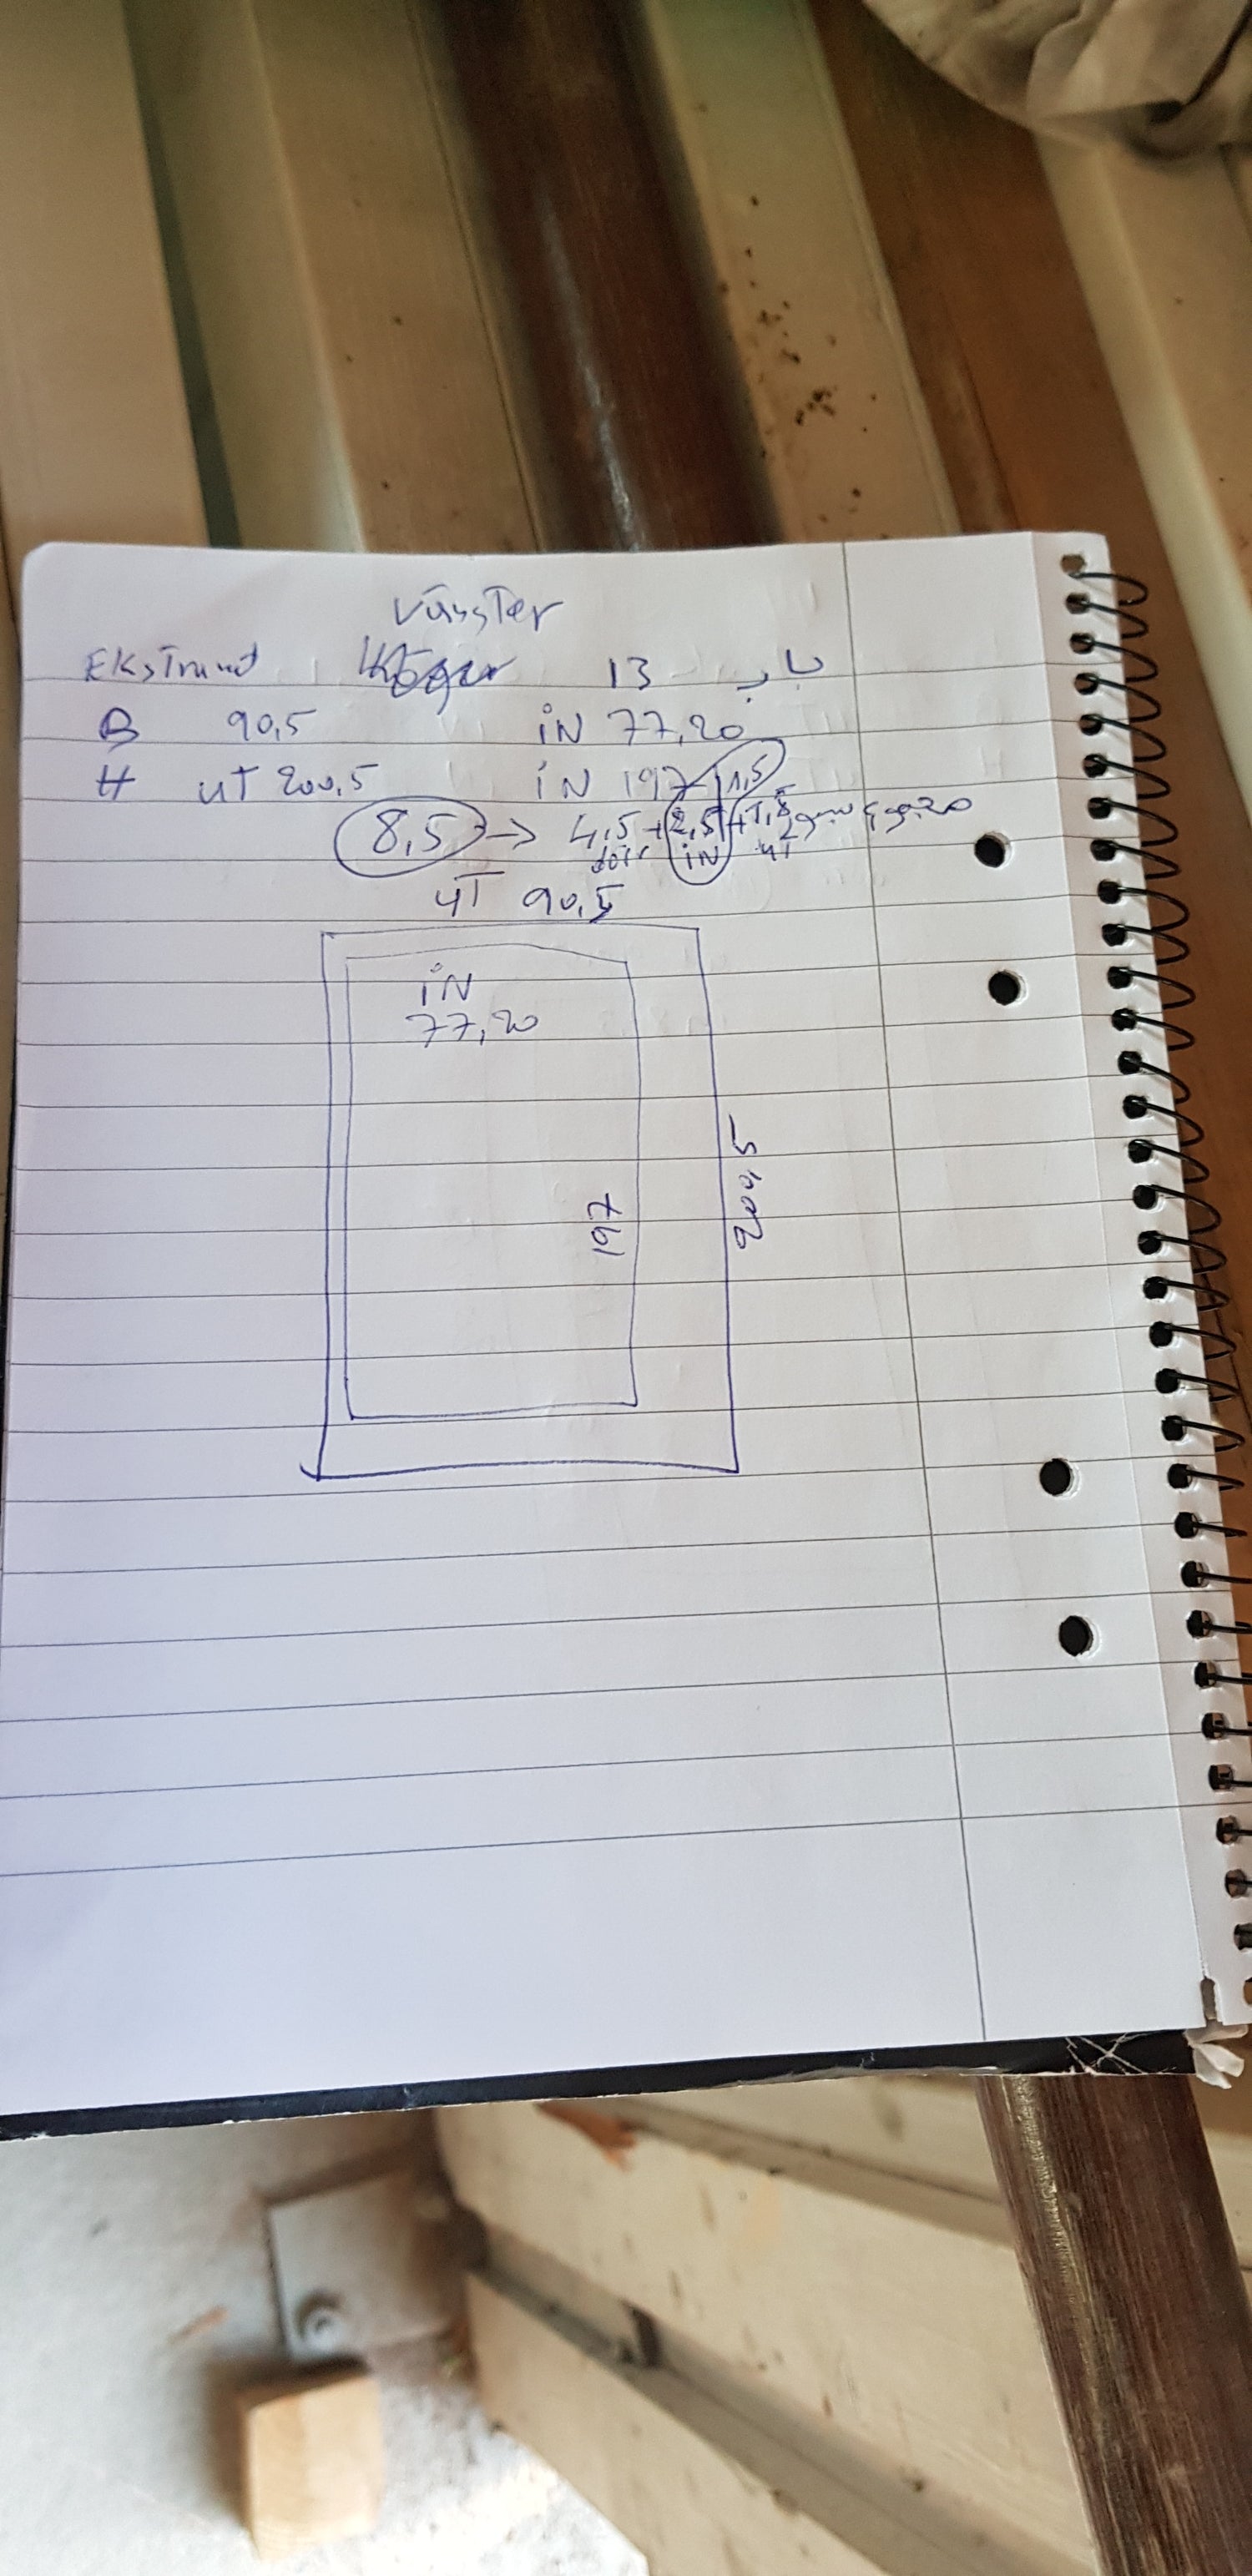 Vänster
Ekstrand 13 باب
B 90,5 iN 77,20
H UT 200,5 iN 197 1,5
8,5 → 4,5 + 2,5 + 1,5
dörr iN UT
UT 90,5
iN
77,20
197
200,5